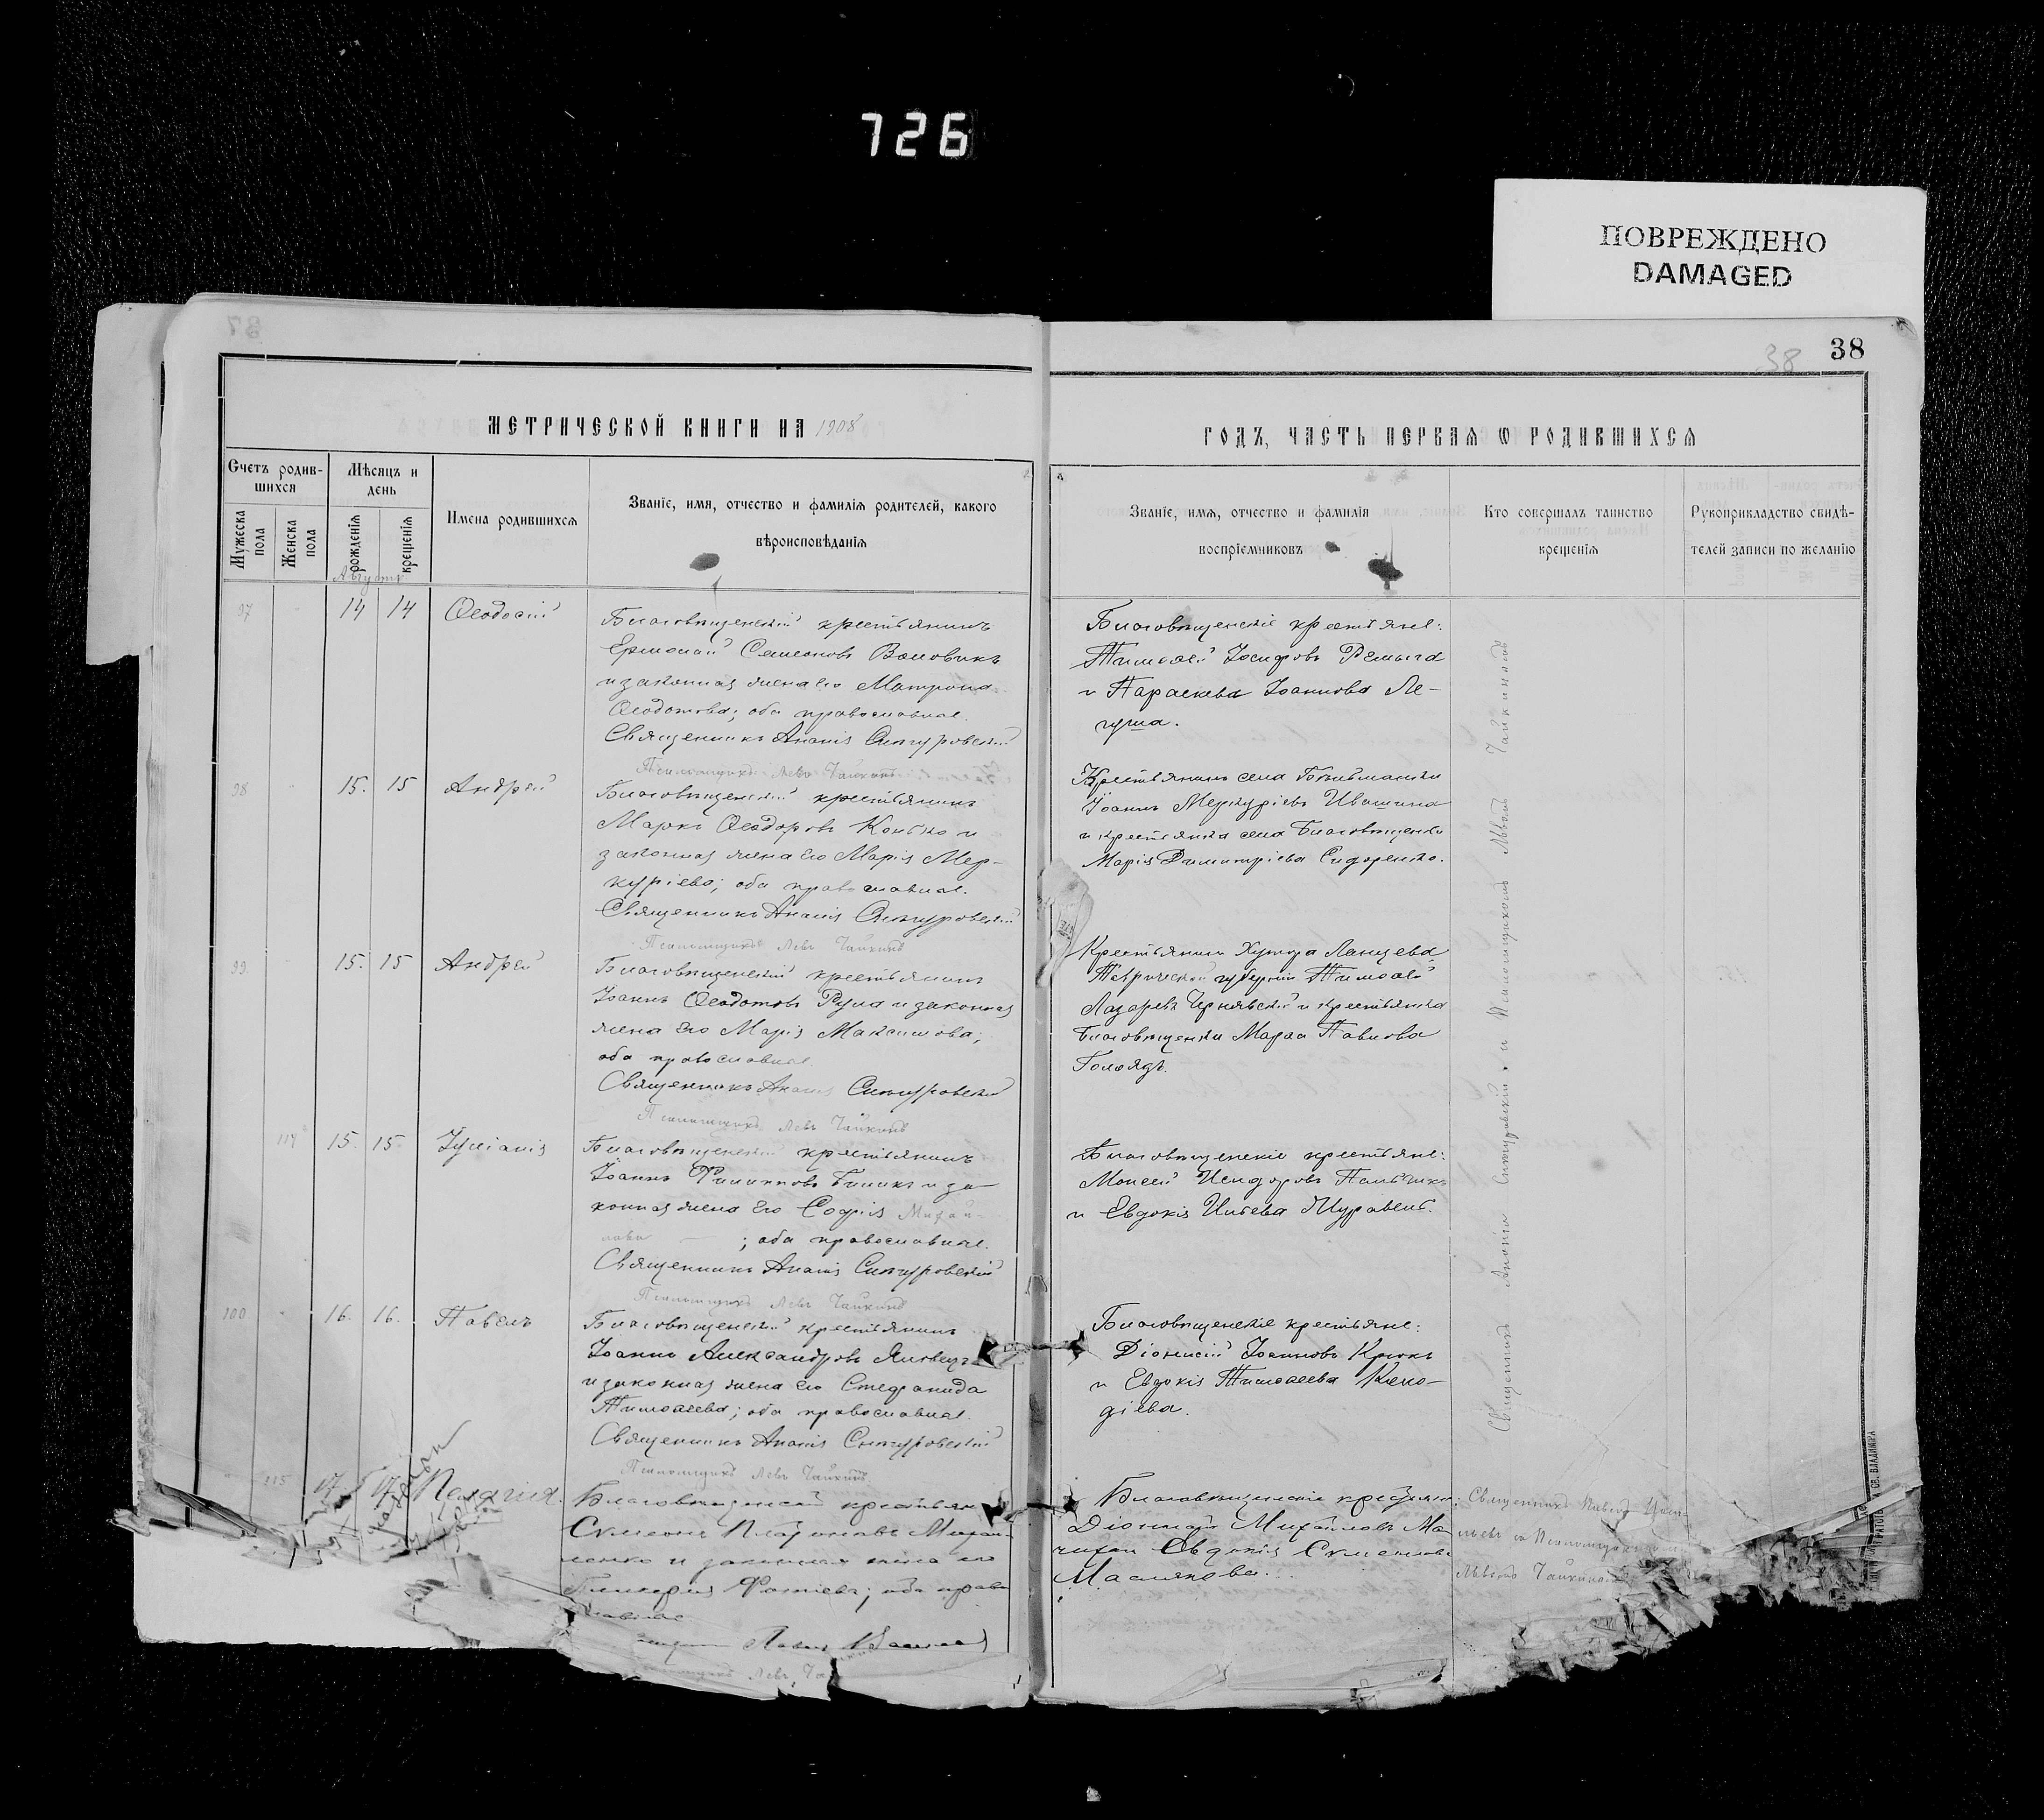 726
ПОВРЕЖДЕНО
DAMAGED
37
38
38
МЕТРИЧЕСКОЙ КНИГИ НА 1908
ГОДЪ, ЧАСТЬ ПЕРВАЯ Ѡ РОДИВШИХСЯ
Счетъ родив-
шихся
Мужеска
пола
Женска
пола
Мѣсяцъ и
день
рожденія
крещенія
Имена родившихся
Званіе, имя, отчество и фамилія родителей, какого
вѣроисповѣданія
Званіе, имя, отчество и фамилія
воспріемниковъ
Кто совершалъ таинство
крещенія
Рукоприкладство свидѣ-
телей записи по желанію
Августъ
97
14 14
Ѳеодосій
Благовѣщенскій крестьянинъ
Ермолай Симеоновъ Воловикъ
и законная жена его Матрона
Ѳеодотова; оба православные.
Священникъ Ананія Ситуровскій
Псаломщикъ Левъ Чайкинъ
Благовѣщенскіе крестьяне:
Тимоѳей Іосифовъ Ремыга
и Параскева Іоаннова Ле-
гуша.
98
15. 15
Андрей
Благовѣщенскій крестьянинъ
Маркъ Ѳеодоровъ и
законная жена его Марія Мер-
куріева; оба православные.
Священникъ Ананія Ситуровскій
Псаломщикъ Левъ Чайкинъ
Крестьянинъ села
Іоаннъ Меркуріевъ Ивашина
и крестьянка села Благовѣщенки
Марія Димитріева Сидоренко.
99
15. 15
Андрей
Благовѣщенскій крестьянинъ
Іоаннъ Ѳеодотовъ Рула и законная
жена его Марія Максимова;
оба православные.
Священникъ Ананія Ситуровскій
Псаломщикъ Левъ Чайкинъ
Крестьянинъ Хутора Ланцева
Таврической губерніи Тимоѳей
Лазаревъ Чернявскій и крестьянка
Благовѣщенки Марѳа Павлова
Голоядъ.
114
15. 15
Іуліанія
Благовѣщенскій крестьянинъ
Іоаннъ Филипповъ Билик и за-
конная жена его Софія Михай-
лова ; оба православные.
Священникъ Ананія Ситуровскій
Псаломщикъ Левъ Чайкинъ
Благовѣщенскіе крестьяне:
Моисей Исидоровъ Пальчикъ
и Евдокія Ильева Журавель.
100
16. 16.
Павелъ
Благовѣщенскій крестьянинъ
Іоаннъ Александровъ Яловецъ
и законная жена его Стефанида
Тимоѳеева; оба православные.
Священникъ Ананія Ситуровскій
Псаломщикъ Левъ Чайкинъ
Благовѣщенскіе крестьяне:
Діонисій Іоанновъ Крюкъ
и Евдокія Тимоѳеева
діева.
Священникъ Ананія Ситуровскій и Псаломщикомъ Львомъ Чайкинымъ
115
17 17
Пелагія.
Благовѣщенскій крестьян
Симеонъ Платоновъ Михай-
ленко и законная жена его
Гликерія Фотіева; оба право
славные
Павелъ
Псаломщикъ Левъ
Благовѣщенскіе крестьяне:
Діонисій Михайловъ
Евдокія Симеонова
Маслякова.
Священникъ Павелъ
и Псаломщикомъ
Львомъ Чайкинымъ
СВ. ВЛАДИМІРА